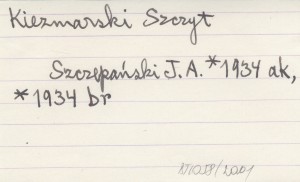 Kiezmarski Szczyt
Szczepański J.A. *1934 ak,
*1934 br